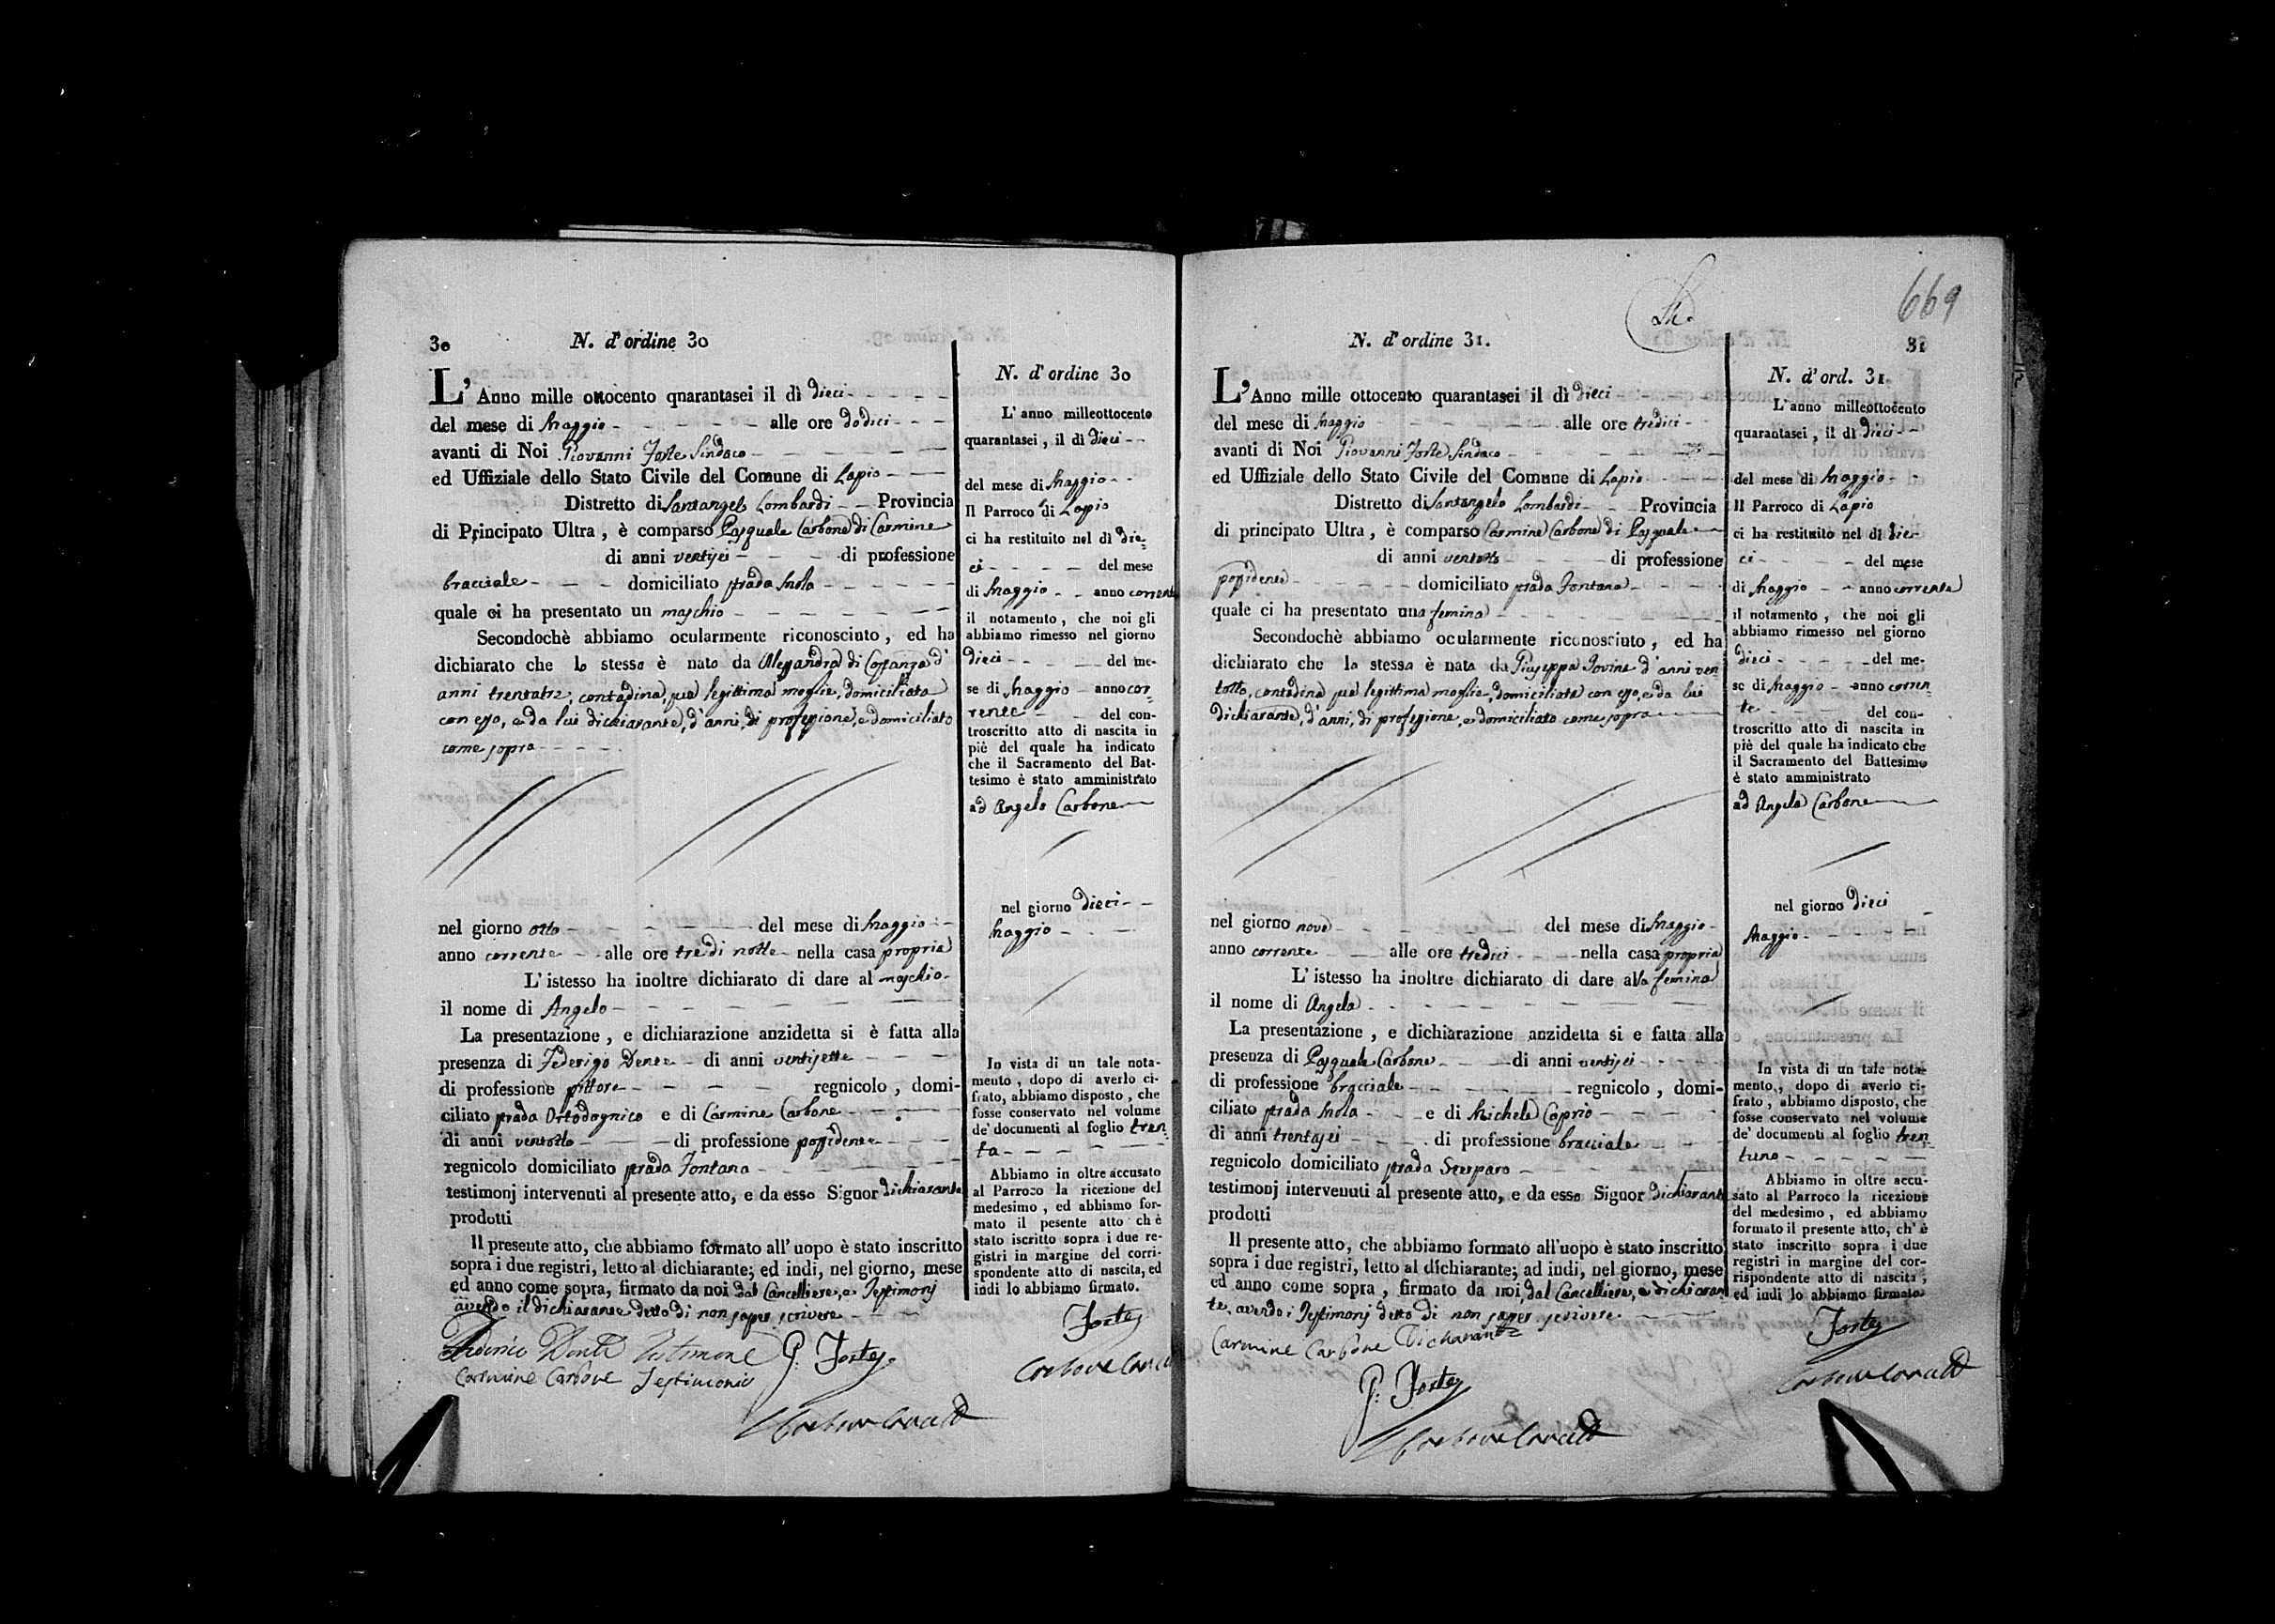 30
N. d' ordine 30
L' Anno mille ottocento quarantasei il dì dieci
del mese di Maggio alle ore dodici
avanti di Noi Giovanni Forte Sindaco
ed Uffiziale dello Stato Civile del Comune di Lapio
Distretto di Santangelo Lombardi Provincia
di Principato Ultra , è comparso Pasquale Carbone di Carmine
di anni ventisei di professione
bracciale domiciliato strada Mola
quale ci ha presentato un maschio
Secondochè abbiamo ocularmente riconosciuto , ed ha
dichiarato che lo stesso è nato da Alessandra di Costanza d'
anni trentatre, contadina, sua legittima moglie, domiciliata
con esso, e da lui dichiarante, d'anni, di professione, e domiciliato
come sopra
nel giorno otto del mese di Maggio
anno corrente alle ore tre di notte nella casa propria
L' istesso ha inoltre dichiarato di dare al maschio
il nome di Angelo
La presentazione , e dichiarazione anzidetta si è fatta alla
presenza di Federigo Dente di anni ventisette
di professione pittore regnicolo , domi-
ciliato strada Ortodognico e di Carmine Carbone
di anni ventotto di professione possidente
regnicolo domiciliato strada Fontana
testimonj intervenuti al presente atto, e da esso Signor dichiarante
prodotti
Il presente atto, che abbiamo formato all' uopo è stato inscritto
sopra i due registri, letto al dichiarante; ed indi, nel giorno, mese
ed anno come sopra, firmato da noi dal Cancelliere, e Testimonj
avendo il dichiarante detto di non saper scrivere
Federico Dente Testimone
G. Forte
Carmine Carbone Testimonio
N. d' ordine 30
L' anno milleottocento
quarantasei , il dì dieci
del mese di Maggio
Il Parroco di Lapio
ci ha restituito nel dì die-
ci del mese
di Maggio anno corrente
il notamento , che noi gli
abbiamo rimesso nel giorno
dieci del me-
se di Maggio anno cor-
rente del con-
troscritto atto di nascita in
piè del quale ha indicato
che il Sacramento del Bat-
tesimo è stato amministrato
ad Angelo Carbone
nel giorno dieci
Maggio
In vista di un tale nota-
mento , dopo di averlo ci-
frato, abbiamo disposto , che
fosse conservato nel volume
de' documenti al foglio tren-
ta
Abbiamo in oltre accusato
al Parroco la ricezione del
medesimo , ed abbiamo for-
mato il pesente atto ch è
stato iscritto sopra i due re-
gistri in margine del corri-
spondente atto di nascita, ed
indi lo abbiamo firmato.
Forte
669
31
N. d' ordine 31.
L' Anno mille ottocento quarantasei il dì dieci
del mese di Maggio alle ore tredici
avanti di Noi Giovanni Forte Sindaco
ed Uffiziale dello Stato Civile del Comune di Lapio
Distretto di Santangelo Lombardi Provincia
di principato Ultra , è comparso Carmine Carbone di Pasquale
di anni ventotto di professione
possidente domiciliato strada Fontana
quale ci ha presentato una femina
Secondochè abbiamo ocularmente riconosciuto , ed ha
dichiarato che la stessa è nata da Giuseppa Iovine d'anni ven
totto, contadina sua legittima moglie, domiciliata con esso, e da lui
dichiarante, d'anni, di professione, e domiciliato come sopra
nel giorno nove del mese di Maggio
anno corrente alle ore tredici nella casa propria
L' istesso ha inoltre dichiarato di dare alla femina
il nome di Angela
La presentazione , e dichiarazione anzidetta si e fatta alla
presenza di Pasquale Carbone di anni ventisei
di professione bracciale regnicolo , domi-
ciliato strada Mola e di Michele Caprio
di anni trentasei di professione bracciale
regnicolo domiciliato strada
testimonj intervenuti al presente atto, e da esso Signor dichiarante
prodotti
Il presente atto, che abbiamo formato all'uopo è stato inscritto
sopra i due registri, letto al dichiarante; ad indi, nel giorno, mese
ed anno come sopra , firmato da noi, dal Cancelliere, e dichiaran
te, avendo i Testimonj detto di non saper scrivere
Carmine Carbone Dicharante
G. Forte
N. d' ord. 31
L' anno milleottocento
quarantasei, il dì dieci
del mese di Maggio
Il Parroco di Lapio
ci ha restituito nel dì die-
ci del mese
di Maggio anno corrente
il notamento , che noi gli
abbiamo rimesso nel giorno
dieci del me-
se di Maggio anno corren-
te del con-
troscritto atto di nascita in
piè del quale ha indicato che
il Sacramento del Battesimo
è stato amministrato
ad Angela Carbone
nel giorno dieci
Maggio
In vista di un tale nota-
mento , dopo di averlo ci-
frato , abbiamo disposto, che
fosse conservato nel volume
de' documenti al foglio tren-
tuno
Abbiamo in oltre accu-
sato al Parroco la ricezione
del medesimo , ed abbiamo
formato il presente atto, ch' è
stato inscritto sopra i due
registri in margine del cor-
rispondente atto di nascita ,
ed indi lo abbiamo firmato
Forte